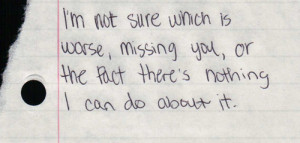 I'm not sure which is
worse, missing you, or
the fact there's nothing
I can do about it.